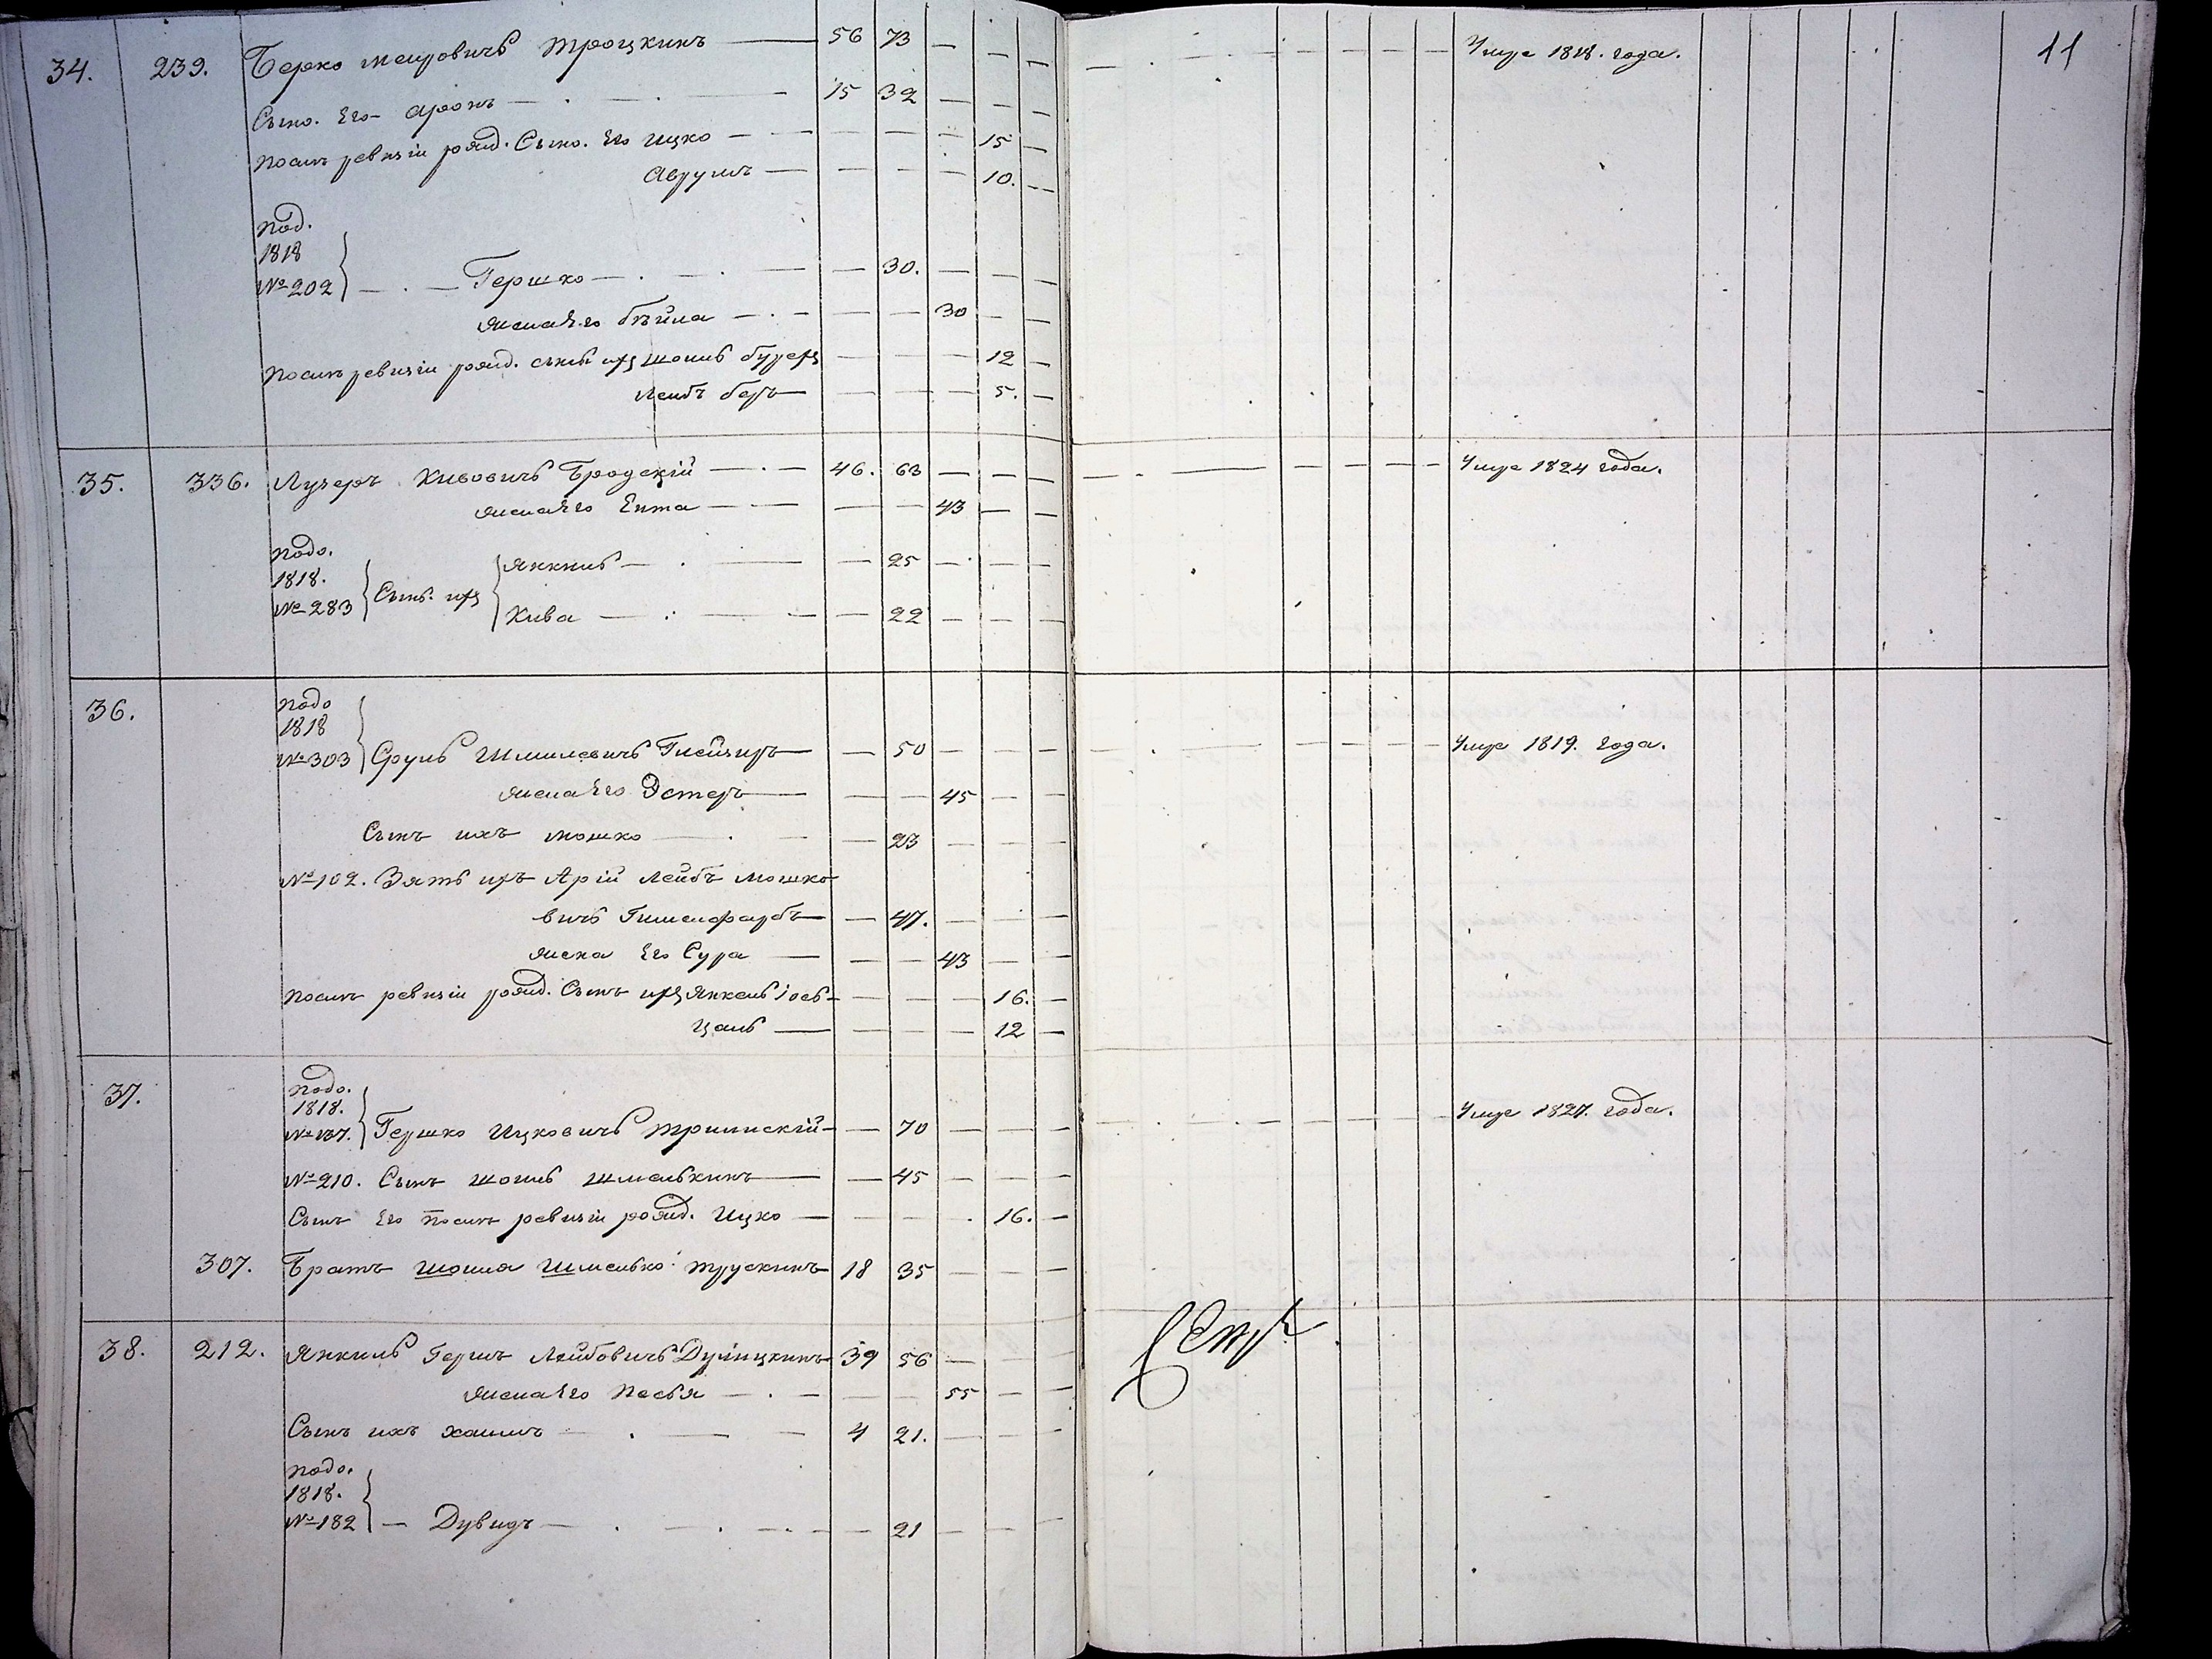 34. 239. Берко Меировичь Троцкинъ — 56 73 — — — Умре 1818. года. 11
Сынъ. Его Аронъ — 15 32 — — —
Посли ревизіи рожд. Сынъ. Его Ицко — — — — 15 —
Аврумъ — — — — 10. —
под.
1818
№ 202 Гершко — — 30. — — —
жена Его Бейла — — — 30 — —
Посли ревизіи рожд. сынъ ихъ Шоиль — — — 12 —
Лейбъ Беръ — — — — 5. —
35. 336. Лузеръ Кивовичь Бродскій — 46. 63 — — — Умре 1824 года.
жена Его Ента — — — 43 — —
подо.
1818.
№ 283 Сынъ. ихъ
Янкиль — — 25 — — —
Кива — — 22 — — —
36. подо
1818
№ 303 Сруль Шмилевичь — 50 — — — Умре 1819. года.
жена Его Эстеръ — — — 45 — —
Сынъ ихъ Мошко — — 23 — — —
№ 102. Зять ихъ Арій Лейбъ Мошко
вичь — 47. — — —
жена Его Сура — — — 43 — —
Посли ревизіи рожд. Сынъ ихъ Янкель — — — — 16. —
Цаль — — — — 12 —
37. подо.
1818.
Гершко Ицковичь — 70 — — — Умре 1827. года.
№ 210. Сынъ Шоиль Шмелькинъ — — 45 — — —
Сынъ Его посли ревизіи рожд. Ицко — — — — 16. —
307. Братъ Шоила Шмелько Трускинъ 18 35 — — —
38. 212. Янкиль Гершъ Лейбовичь 39 56 — — —
жена Его Песья — — — 55 — —
Сынъ ихъ Хаимъ — 4 21. — — —
подо.
1818.
№ 182 — Дувидъ — — 21 — — —